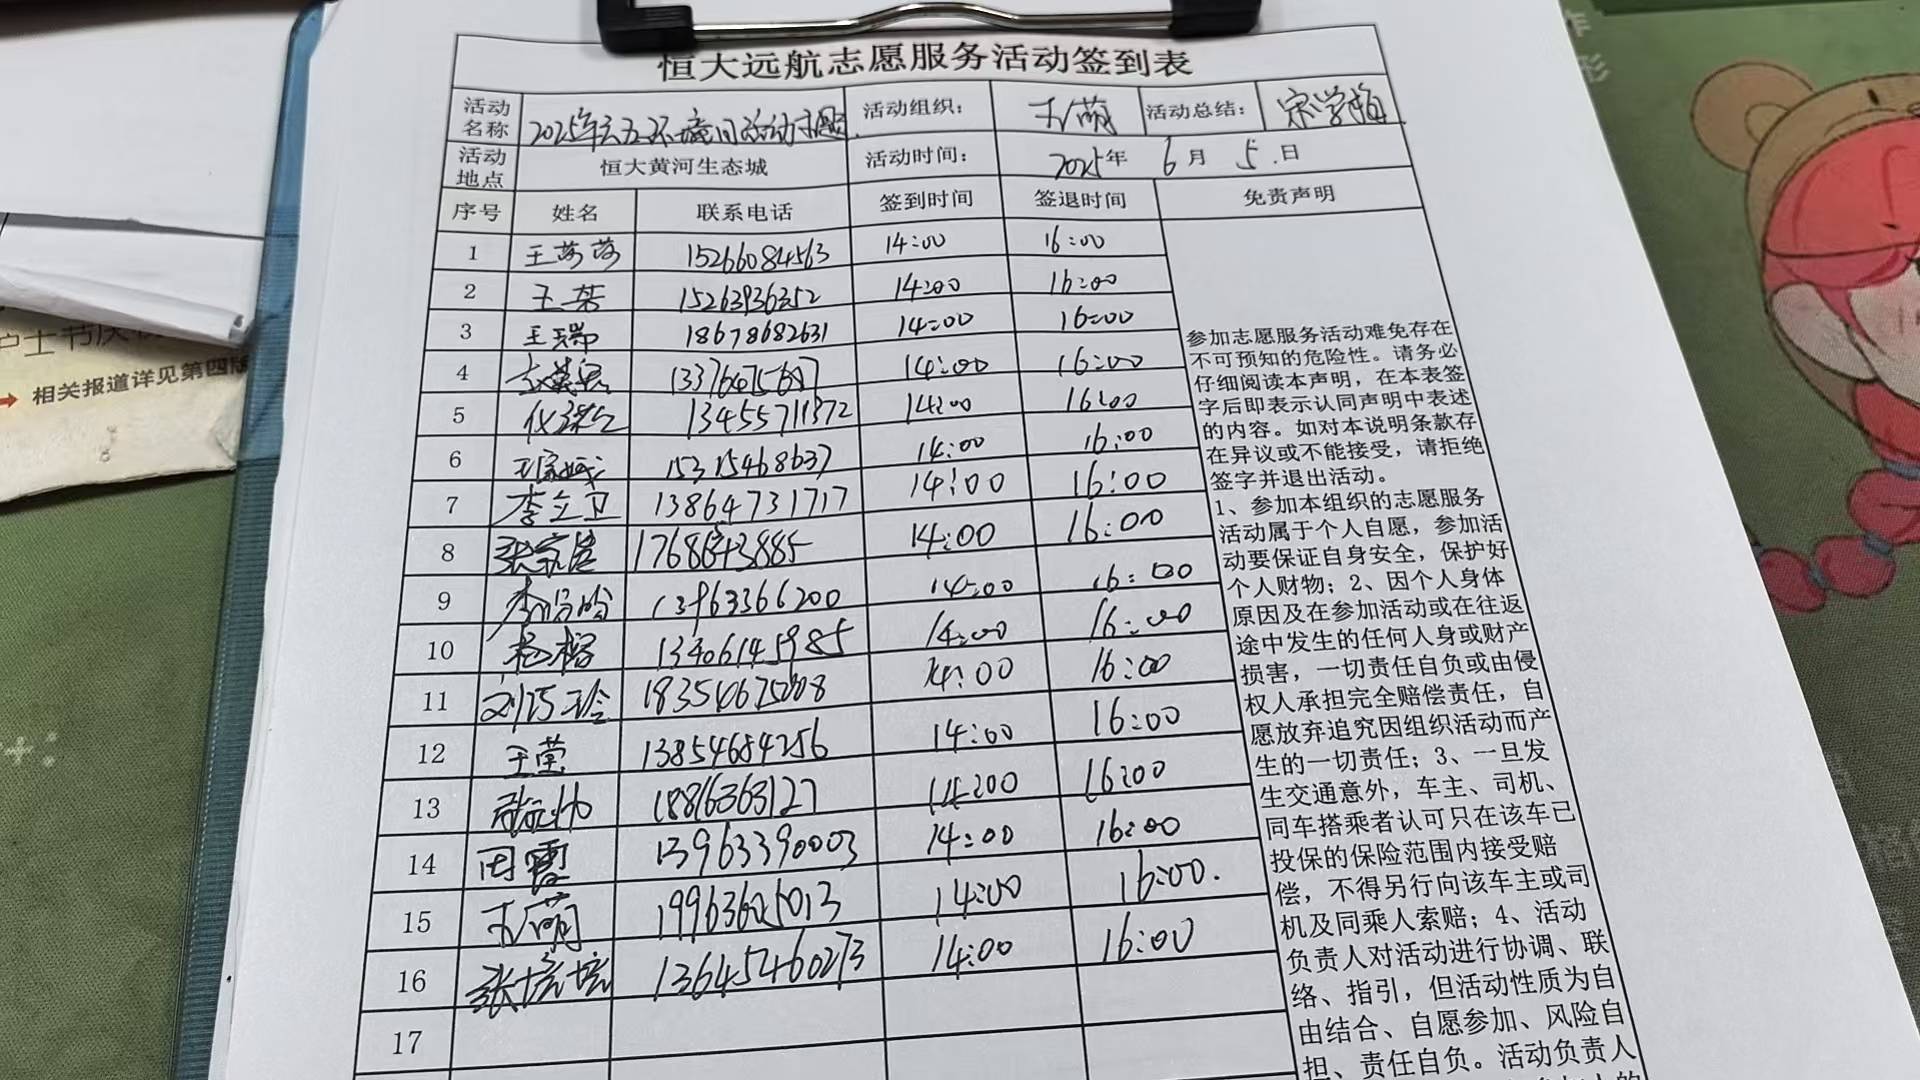 恒大远航志愿服务活动签到表
活动名称 2025年六五环境日活动主题 活动组织： 王萌 活动总结： 宋学梅
活动地点 恒大黄河生态城 活动时间： 2025年 6月 5日
序号 姓名 联系电话 签到时间 签退时间 免责声明
1 王莎莎 15266084563 14:00 16:00
2 王荣 15263936352 14:00 16:00
3 王瑞 18678682631 14:00 16:00
4 14:00 16:00
5 13455711372 14:00 16:00
6 15315468637 14:00 16:00
7 李立卫 13864731717 14:00 16:00
8 14:00 16:00
9 13963366200 14:00 16:00
10 杨榕 13406145985 14:00 16:00
11 刘巧玲 14:00 16:00
12 王莹 13854684256 14:00 16:00
13 18816363127 14:00 16:00
14 田霞 13963390003 14:00 16:00
15 王萌 19963605013 14:00 16:00.
16 张培培 14:00 16:00
17
参加志愿服务活动难免存在
不可预知的危险性。请务必
仔细阅读本声明，在本表签
字后即表示认同声明中表述
的内容。如对本说明条款存
在异议或不能接受，请拒绝
签字并退出活动。
1、参加本组织的志愿服务
活动属于个人自愿，参加活
动要保证自身安全，保护好
个人财物；2、因个人身体
原因及在参加活动或在往返
途中发生的任何人身或财产
损害，一切责任自负或由侵
权人承担完全赔偿责任，自
愿放弃追究因组织活动而产
生的一切责任；3、一旦发
生交通意外，车主、司机、
同车搭乘者认可只在该车已
投保的保险范围内接受赔
偿，不得另行向该车主或司
机及同乘人索赔；4、活动
负责人对活动进行协调、联
络、指引，但活动性质为自
由结合、自愿参加、风险自
担、责任自负。活动负责人
护士节庆
相关报道详见第四版